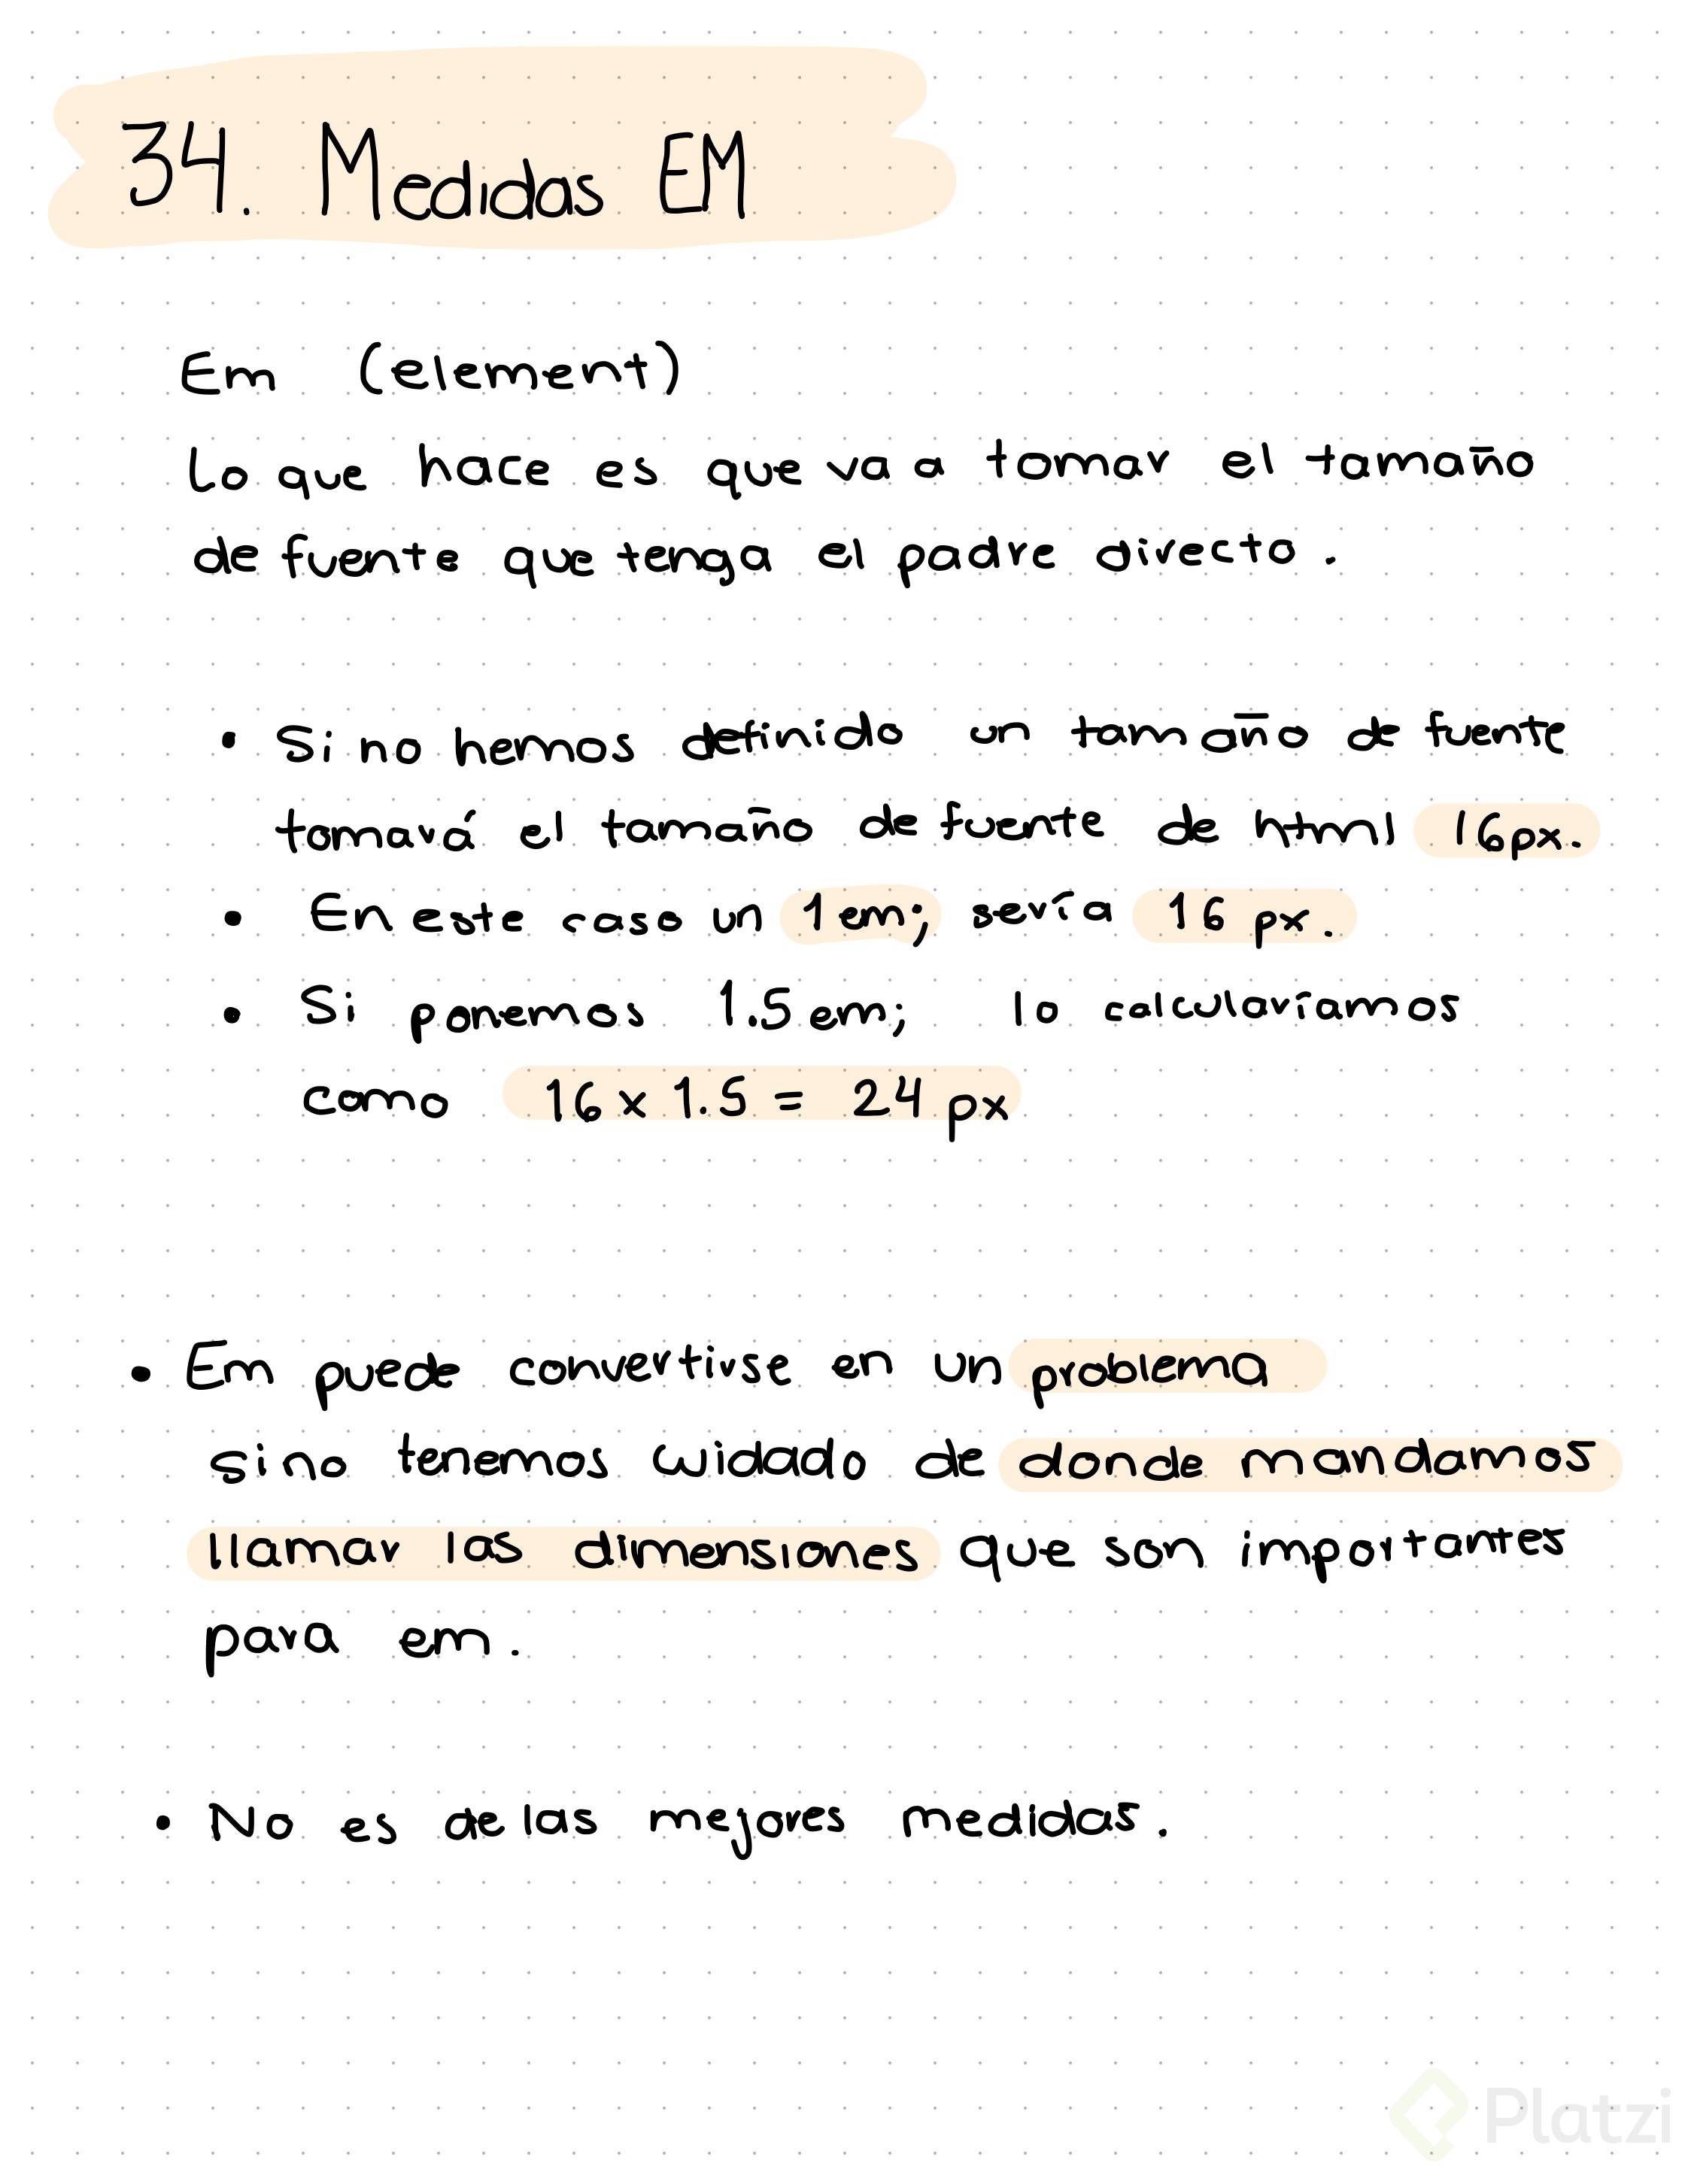 34. Medidas EM
Em (element)
Lo que hace es que va a tomar el tamaño
de fuente que tenga el padre directo.
• Si no hemos definido un tamaño de fuente
tomará el tamaño de fuente de html 16px.
• En este caso un 1em; sería 16 px.
• Si ponemos 1.5em; lo calcularíamos
como 16 x 1.5 = 24 px
• Em puede convertirse en un problema
si no tenemos cuidado de donde mandamos
llamar las dimensiones que son importantes
para em.
• No es de las mejores medidas.
Platzi